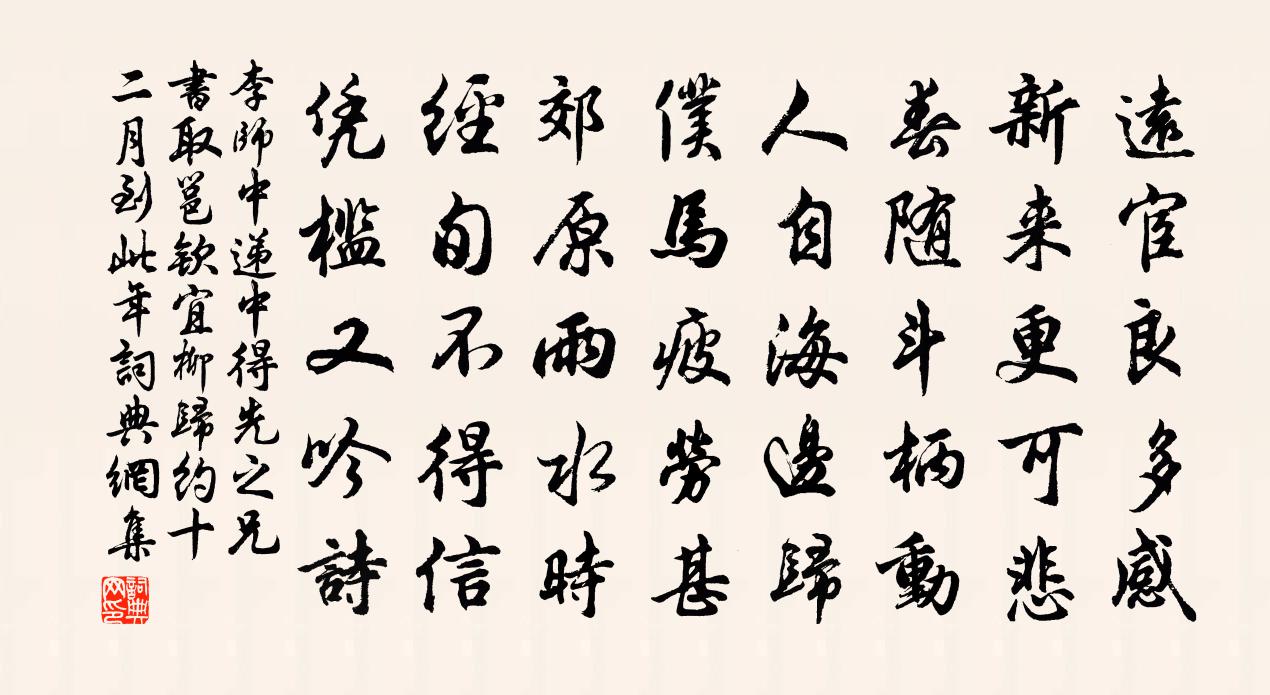 遠宦良多感
新来更可悲
春随斗柄動
人自海邊歸
僕馬疲勞甚
郊原雨水時
經旬不得信
凭檻又吟詩
李師中遞中得先之兄
書取邕欽宜柳歸約十
二月到此年詞典網集
詞典
网印